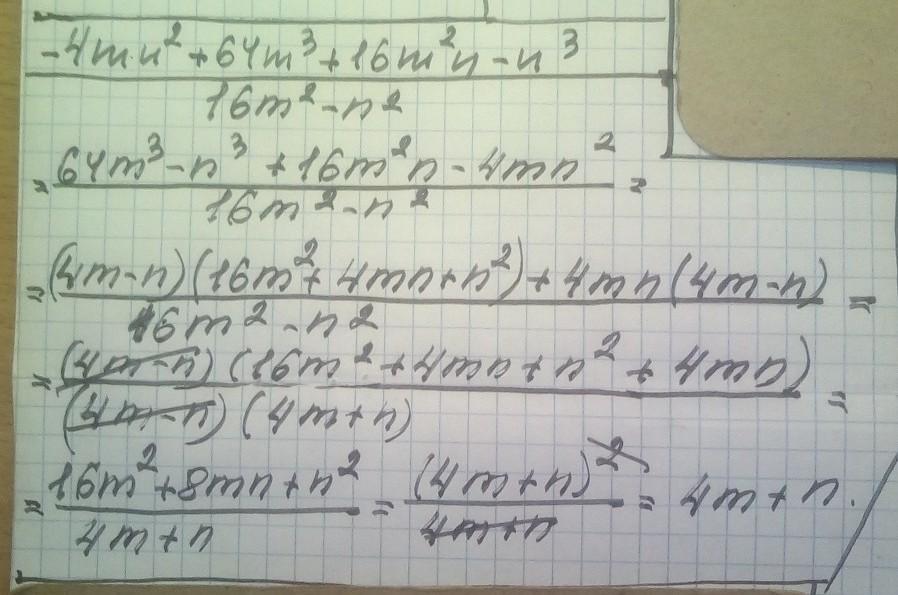 -4mn² + 64m³ + 16m²n - n³
16m² - n²
= 64m³ - n³ + 16m²n - 4mn² =
16m² - n²
= (4m - n)(16m² + 4mn + n²) + 4mn(4m - n) =
16m² - n²
= (4m - n)(16m² + 4mn + n² + 4mn) =
(4m - n)(4m + n)
= 16m² + 8mn + n² = (4m + n)² = 4m + n.
4m + n 4m + n